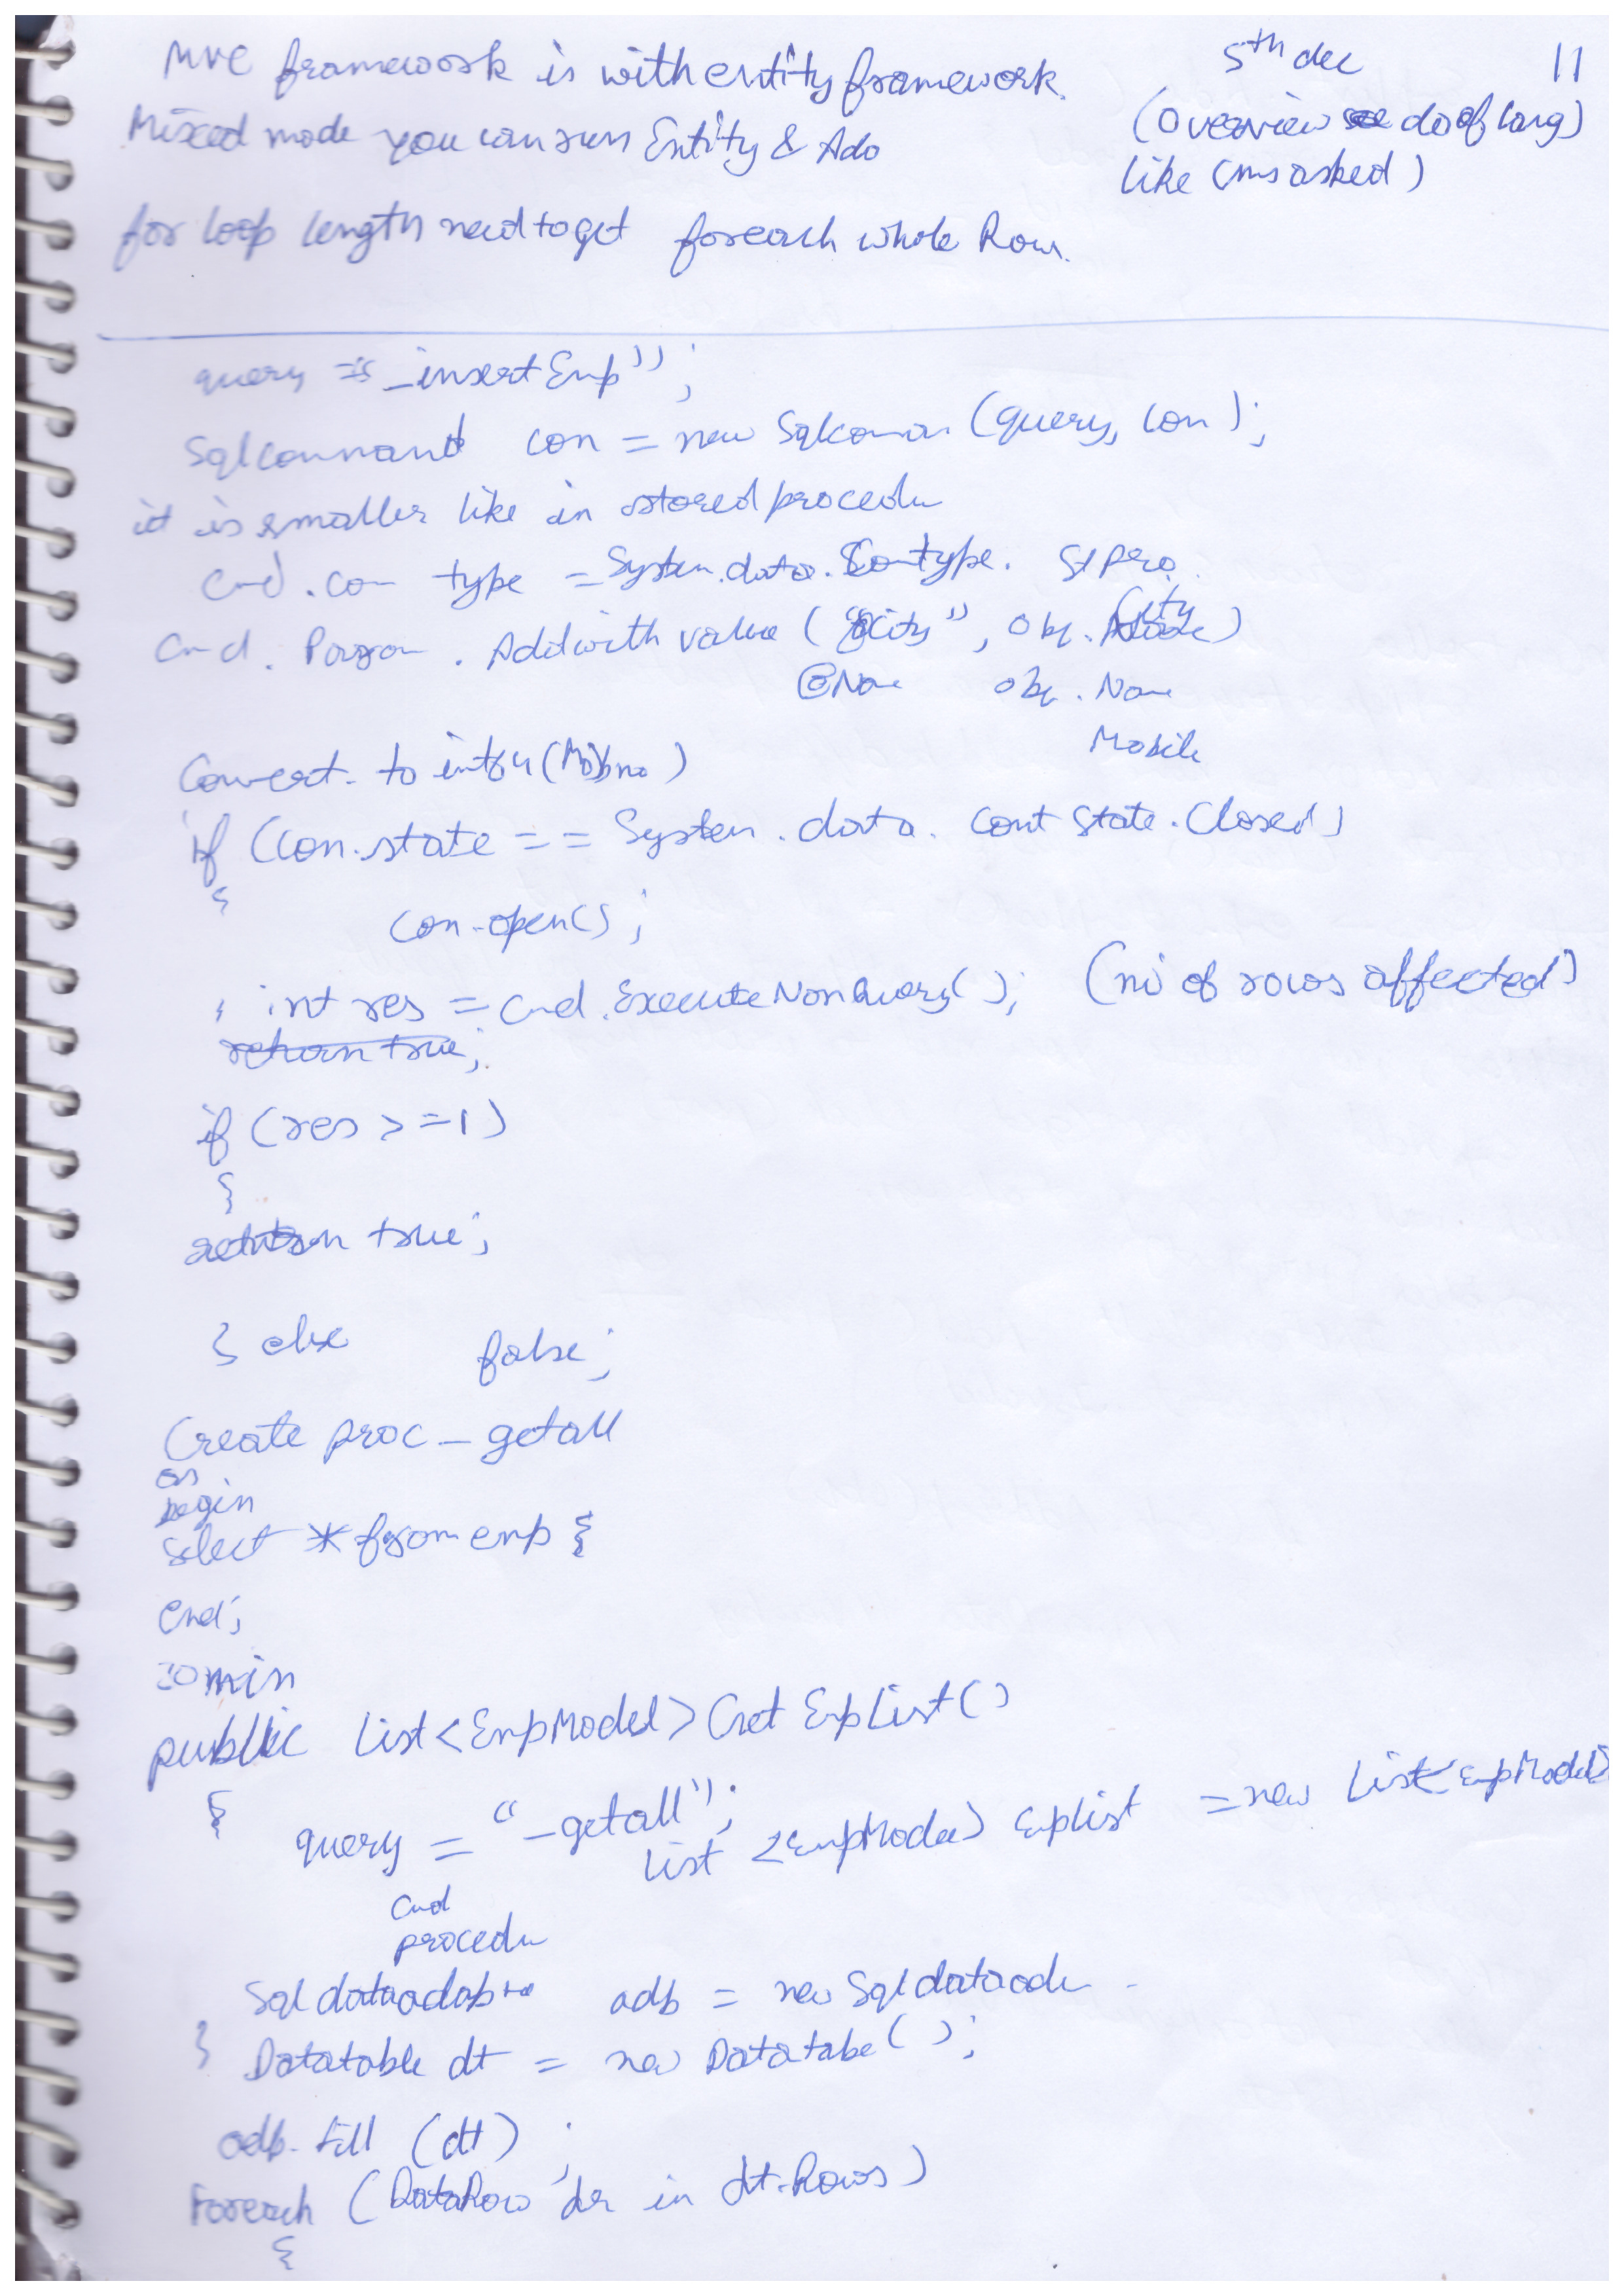 5th dec 11
MVC framework is with entity framework.
(Overview do of lang)
Mixed mode you can run Entity & Ado
like (ms asked)
for loop length need to get foreach whole Row.
query = "_insertEmp";
Sqlcommand con = new Sqlcomm (query, con);
it is smaller like in stored procedu
Cmd.com type = System.data.Comtype. St pro.
Cmd. Param. Addwith value ("@city", obj. City)
@Name obj. Name
Mobile
Convert. to int64 (Mobno)
if (con.state == System.data. cont state.Closed)
{
con.open();
} int res = cmd.ExecuteNonQuery(); (no of rows affected)
return true;
if (res >=1)
{
return true;
} else false;
Create proc _getall
as
begin
select * from emp
end;
30 min
public List<EmpModel> Get EmpList()
{
query = "_getall";
List <EmpModel> Emplist = new List<EmpModel>
cmd
procedu
Sqldataadapte adp = new Sqldataada
} Datatable dt = new Datatabe();
adp.fill (dt);
Foreach (DataRow dr in dt.Rows)
{